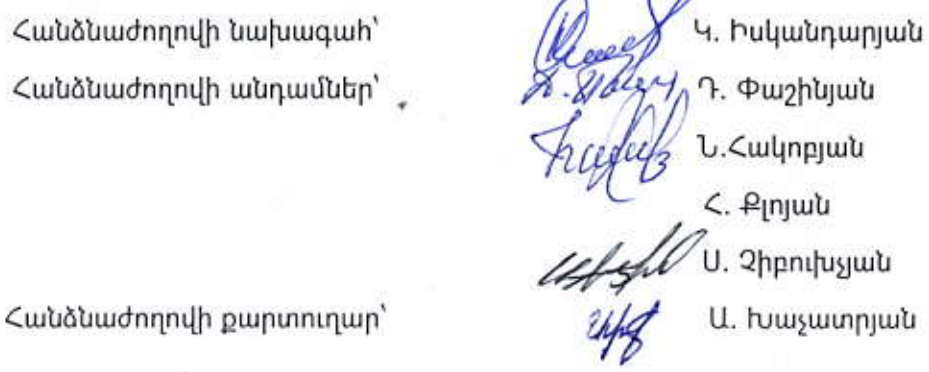 Հանձնաժողովի նախագահ՝ Կ. Իսկանդարյան
Հանձնաժողովի անդամներ՝ Դ. Փաշինյան
Ն.Հակոբյան
Հ. Քլոյան
Ս. Չիբուխչյան
Հանձնաժողովի քարտուղար՝ Ա. Խաչատրյան